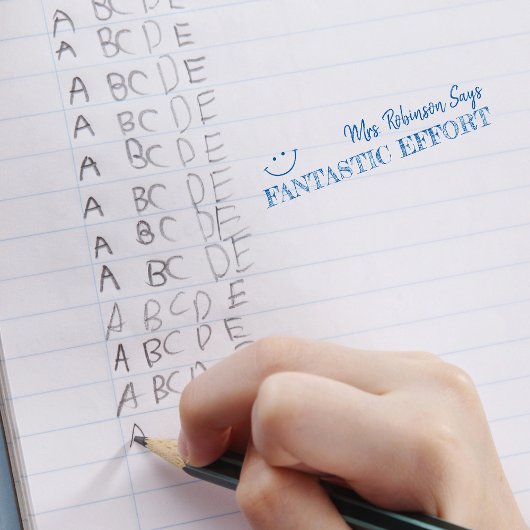 A BCDE
A BCDE
A BCDE
A BCDE
A BCDE
A BCDE
A BCDE
A BCDE
A BCDE
A BCDE
A BCD
A
Mrs Robinson Says
FANTASTIC EFFORT